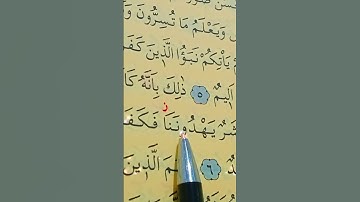 حْسَنَ صُوَرَ
وَيَعْلَمُ مَا تُسِرُّونَ وَ
يَأْتِكُمْ نَبَؤُا الَّذِينَ كَفَ
اَلِيمٌ ٥ ذٰلِكَ بِاَنَّهُ كَا
ز
شَرٌ يَهْدُونَنَا فَكَفَ
دٌ ٦ مَ الَّذِينَ